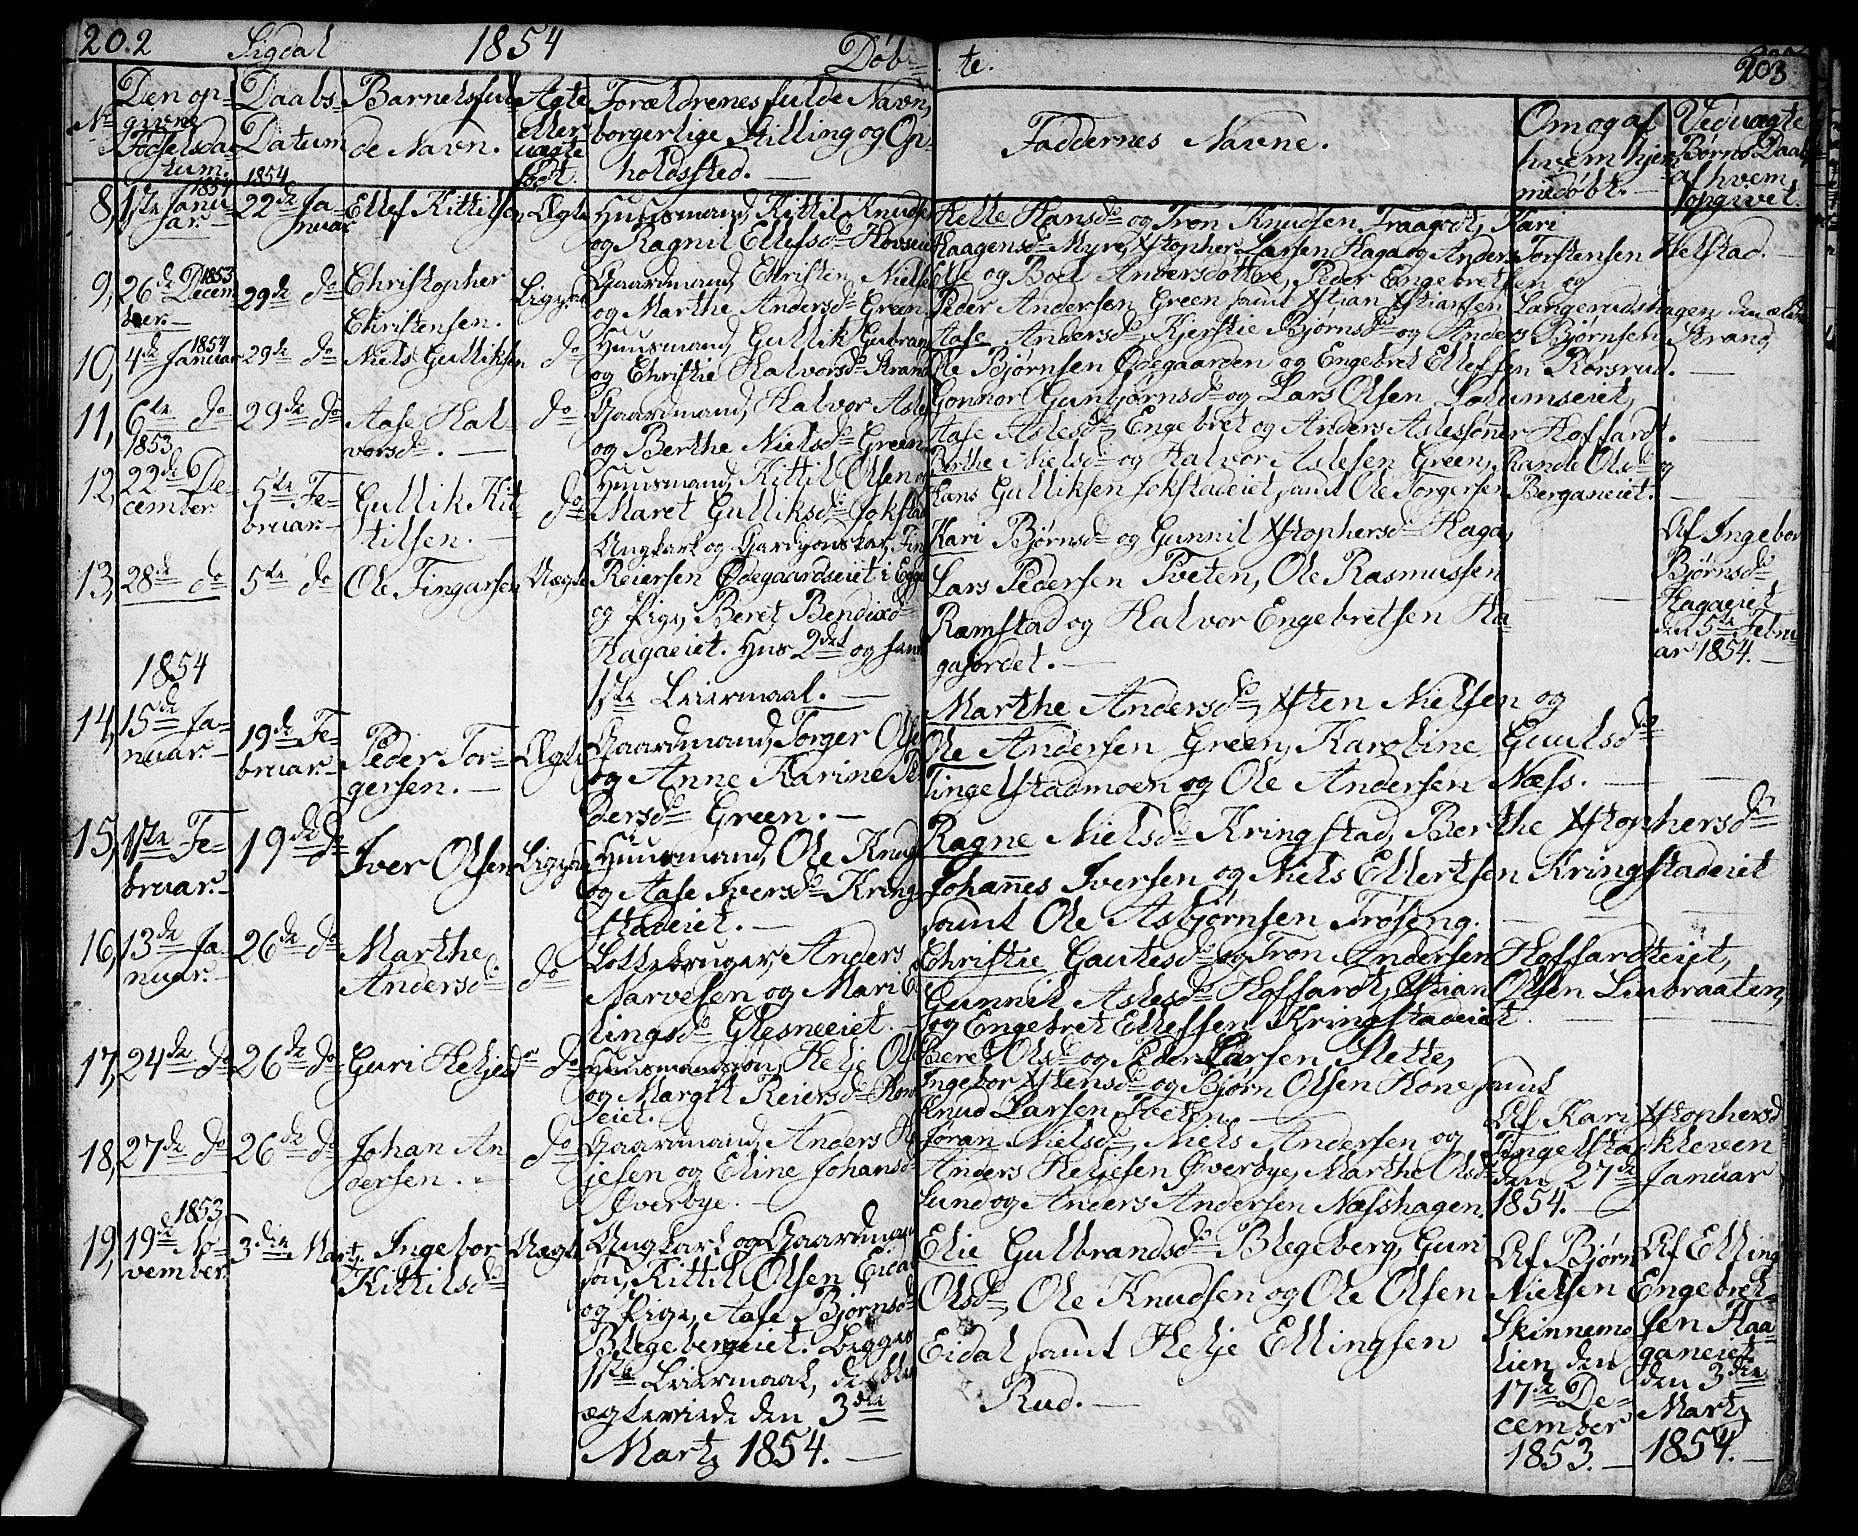 202 Sigdal 1854 Døb-
te. 203
No Den op-
givne
Fødselsda-
tum.
Daabs
Datum
Barnets ful-
de Navn.
Ægte
eller
uægte
født.
Forældrenes fulde Navn,
borgerlige Stilling og Op-
holdssted.
Faddernes Navne.
Om og af
hvem hjem-
medøbt.
Ved uægte
Børns Daab
af hvem
opgivet.
8, 1ste Janu-
ar. 1854
22de Ja-
nuar 1854
Ellef Kittilsen
Ægte
Huusmand, Kittil Knudsen
og Ragnil Ellefsd.
Helle Hansd. og Tron Knudsen Fraagot, Kari
Haagensd. Myre, Xstopher Larsen Haga og Anders Torstensen Helstad.
9, 26de Decem-
ber. 1853
29de do
Christopher
Christensen.
Ligesaa
Gaardmand, Christen Nielsen
og Marthe Andersd. Green
Else og Boel Andersdøttre, Peder Engebretsen og
Peder Andersen Green samt Xstian Xstiansen Langerudshagen den ældre
10, 4de Januar 1854
29de do
Niels Gulliksen
do
Huusmand, Gullik Gubrans
og Christie Halvorsd. Strand
Aase Andersd., Kjerstie Bjørnsd. og Anders Bjørnsen Strand,
Ole Bjørnsen Ødegaarden og Engebret Ellefsen Rørsrud.
11, 6te do
29de do
Aase Hal-
vorsd.
do
Gaardmand, Halvor Asle
og Berthe Nielsd. Green
Gonnor Gunbjørnsd. og Lars Olsen Lofumseiet,
Aase Aslesd., Engebret og Anders Aslesønner Hoffardt.
12, 1853
22de De-
cember
5te Fe-
bruar.
Gullik Kit-
tilsen.
do
Huusmand, Kittil Olsen
Maret Gulliksd. Jokstad
Berthe Nielsd. og Halvor Aslesen Green, Rande Olsd. og
Hans Gulliksen Jokstadeiet samt Ole Torgersen Berganeiet.
13, 28de do
5te do
Ole Fingarsen
Uægte
Ungkarl og Gardijonskar, Fin
Reiersen Ødegaardseiet i Egge
og Pige, Beret Bendixd.
Hagaeiet. Hus 2det og hans
1ste Leiermaal.
Kari Bjørnsd. og Gunnil Xstophersd. Haga,
Lars Pedersen Tveten, Ole Rasmussen
Ramstad og Halvor Engebretsen Ha-
gajordet.
Af Ingebor
Bjørnsd.
Hagaeiet
den 5te Febru-
ar 1854.
1854
14, 15de Ja-
nuar.
19de Fe-
bruar.
Peder Tor-
gersen.
Ægte
Gaardmand, Torger Olse
og Anne Karine P
dersd. Green.
Marthe Andersd., Xsten Nielsen og
Ole Andersen Green, Karoline Guulsd.
Tingelstadmoen og Ole Andersen Næss.
15, 1ste Fe-
bruar.
19de do
Iver Olsen
Ligesaa
Huusmand, Ole Knud
og Aase Iversd. Kring-
stadeiet.
Ragne Nielsd. Kringstad, Berthe Xstophersd.
Johannes Iversen og Niels Ellertsen Kringstadeiet
samt Ole Asbjørnsen Trøseng.
16, 13de Ja-
nuar.
26de do
Marthe
Andersd.
do
Lottebruger, Anders
Narvesen og Mari E
lingsd. Glesneeiet.
Christie Gautesd. og Tron Andersen Hoffardteiet,
Gunnil Aslesd. Hoffardt, Xstian Olsen Linbraaten,
og Engebret Ellefsen Kringstadeiet
17, 24de do
26de do
Guri Heljesd.
do
Huusmandssøn, Helje Ols
og Margit Reiersd. Kone
eiet.
Beret Olsd. og Peder Larsen Slette,
Ingebor Xstensd. og Bjørn Olsen Kone samt
Knud Larsen Tveten.
18, 27de do
26de do
Johan An-
dersen.
do
Gaardmand, Anders He
jesen og Eline Johansd.
Øverbye.
Jøran Nielsd., Niels Andersen og
Anders Heljesen Øverbye, Marthe Olsd.
Lund og Anders Andersen Næsshagen.
Af Kari Xstophersd
Tingelstadkleven
den 27de Januar
1854.
19, 1853
19de No-
vember.
3die Martz,
Ingebor
Kittilsd.
Uægte
Ungkarl og Gaardmand
søn, Kittil Olsen Eidal
og Pige, Aase Bjørnsd.
Blegebergeiet. Begges
1ste Leiermaal, de bleve
ægteviede den 3die
Martz 1854.
Elie Gulbrandsd. Blegeberg, Guri
Olsd., Ole Knudsen og Ole Olsen
Eidal samt Helje Ellingsen
Rud.
Af Bjørn
Nielsen
Skinnemo-
lien den
17de De-
cember
1853.
Af Elling
Engebret-
sen Haa-
ganeiet
den 3die
Martz
1854.